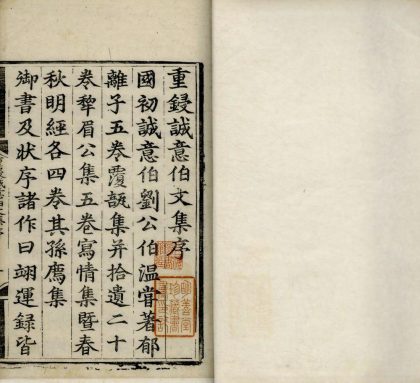 重鋟誠意伯文集序
國初誠意伯劉公伯溫甞著郁
離子五卷覆瓿集并拾遺二十
卷犂眉公集五卷寫情集暨春
秋明經各四卷其孫廌集
御書及狀序諸作曰翊運録皆